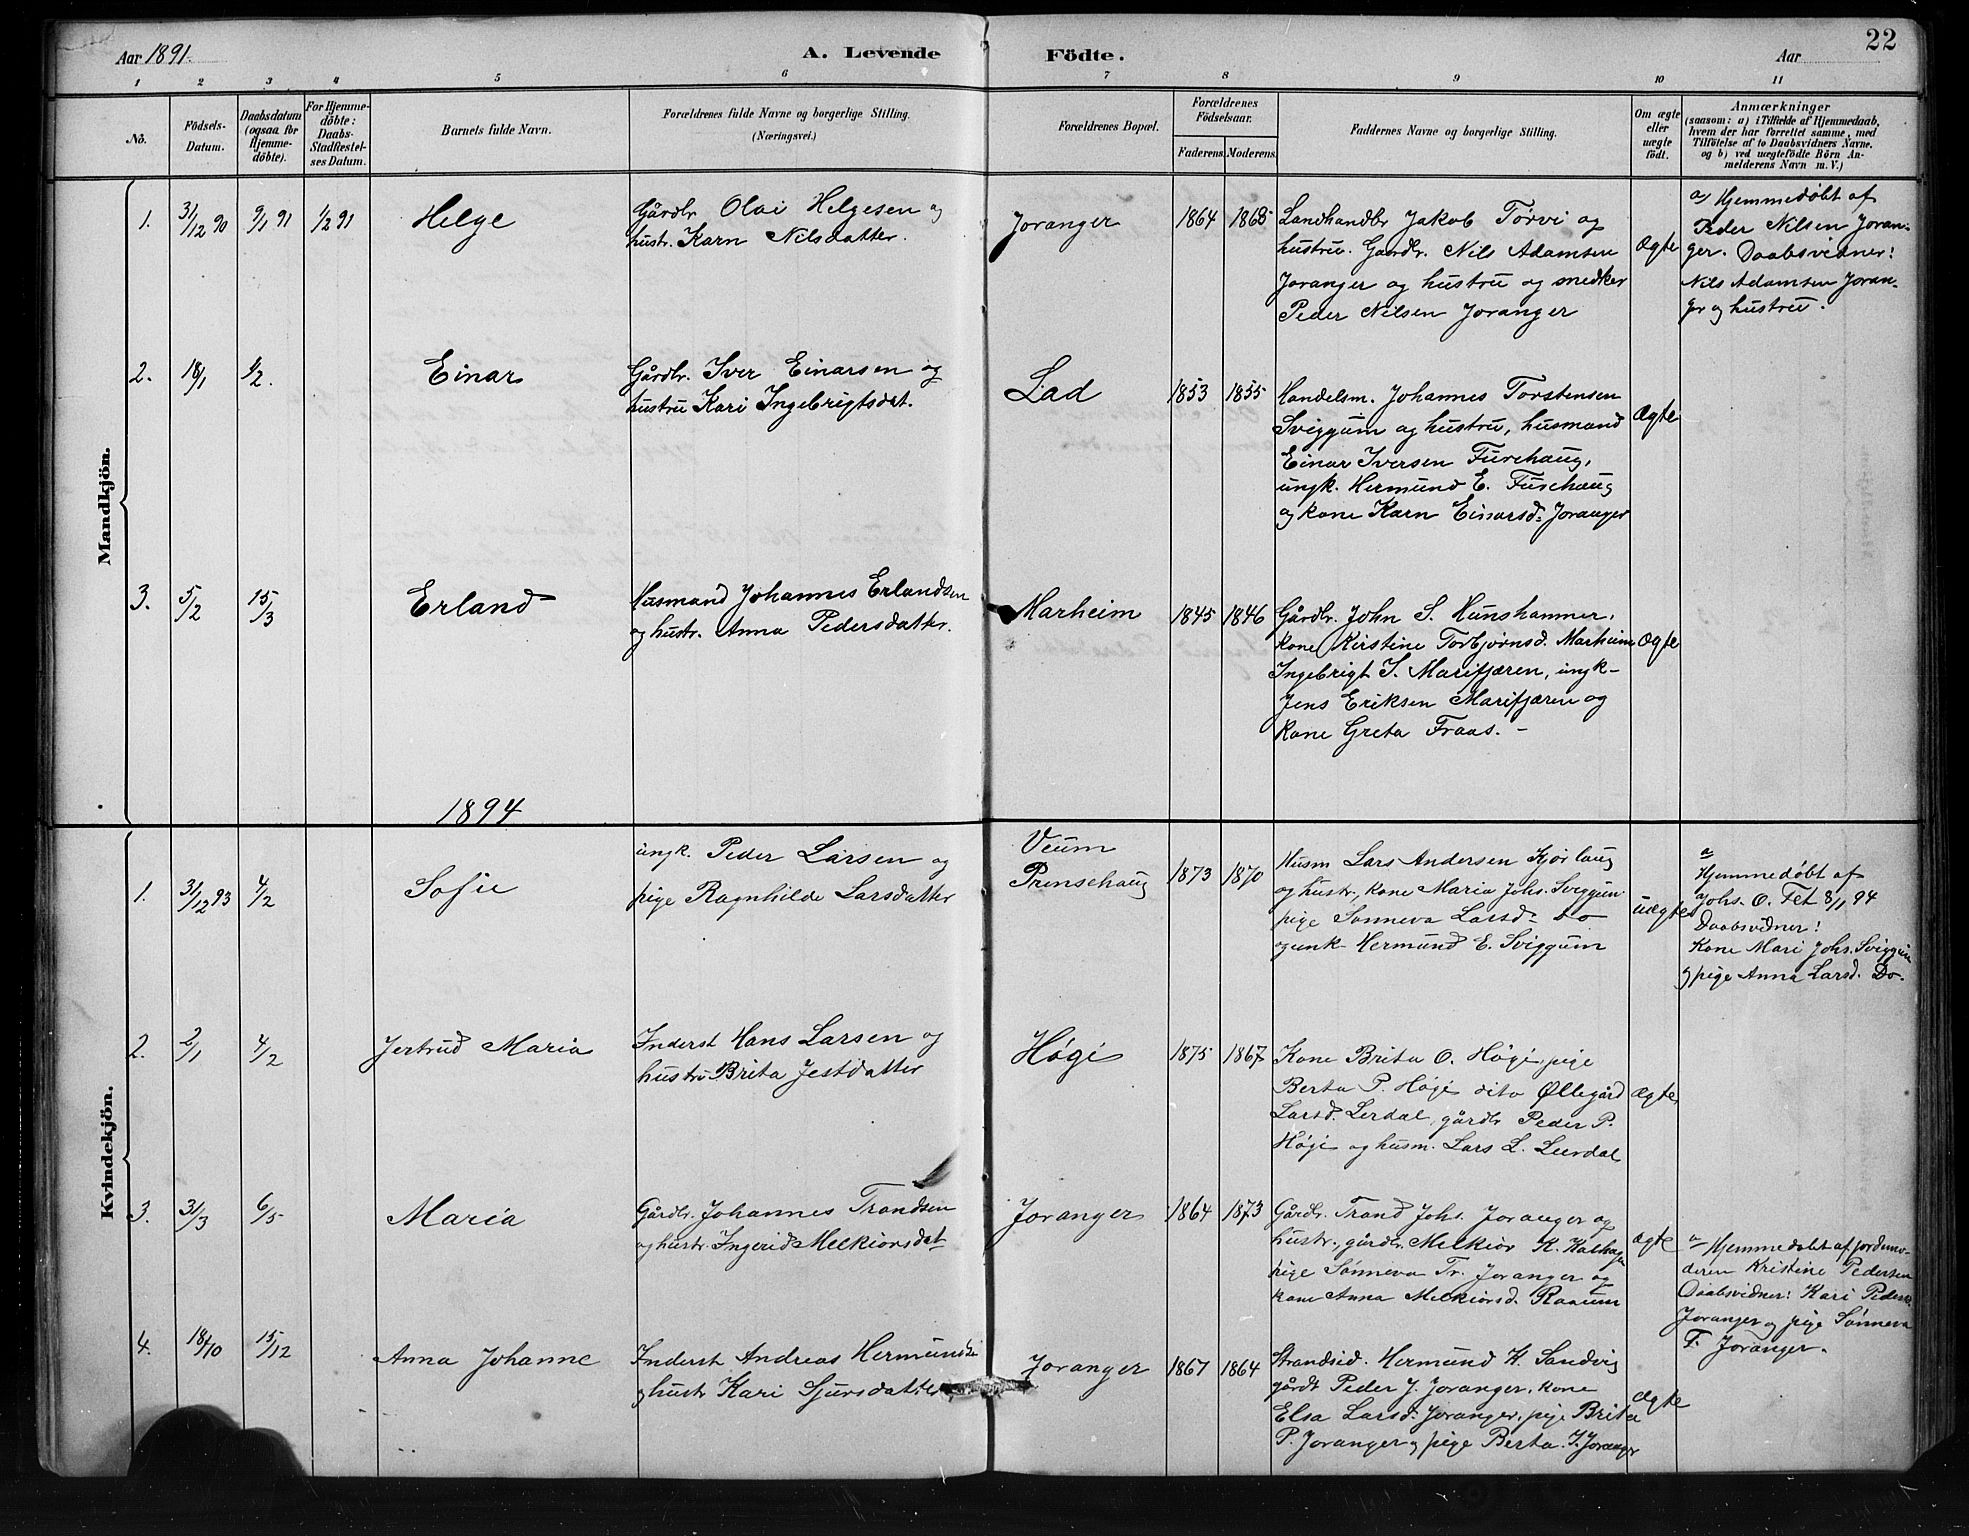 22
Aar 1891.
A. Levende Födte.
Aar
1 2 3 4 5 6 7 8 9 10 11
No.
Födsels-
Datum.
Daabsdatum
(ogsaa for
Hjemme-
döbte).
For Hjemme-
döbte:
Daabs-
Stadfæstel-
ses Datum.
Barnets fulde Navn.
Forældrenes fulde Navne og borgerlige Stilling.
(Næringsvei.)
Forældrenes Bopæl.
Forældrenes
Födselsaar.
Faderens. Moderens.
Faddernes Navne og borgerlige Stilling.
Om ægte
eller
uægte
födt.
Anmærkninger
(saasom: a) i Tilfælde af Hjemmedaab,
hvem der har forrettet samme, med
Tilföielse af to Daabsvidners Navne.
og b) ved uægtefödte Börn An-
melderens Navn m. V.)
Mandkjön.
1. 31/12 90 9/1 91 1/2 91
Helge
Gårdbr. Olai Helgesen og
hustr. Karn Nilsdatter.
Joranger
1864 1865
Landhandlr Jakob Tørvi og
hustru. Gaardbr. Nils Adamsen
Joranger og hustru og snedker
Peder Nilsen Joranger
Ægte
a) Hjemmedøbt af
Peder Nilsen Joran-
ger. Daabsvidner:
Nils Adamsen Joran-
gr og hustru.
2. 18/1 1/2.
Einar
Gårdbr. Iver Einarsen og
hustru Kari Ingebrigtsdat.
Lad
1853 1855
Handelsm. Johannes Torstensen
Sviggum og hustru, husmand
Einar Iversen Furehaug,
ungk. Hermund E. Furehaug
og kone Karn Einarsd. Joranger
Ægte
3. 5/2 15/3
Erland
Husmand Johannes Erlandsen
og hustr. Anna Pedersdatter.
Marheim
1845 1846
Gårdbr. John S. Hunshammer,
kone Kirstine Torbjørnsd. Marheim
Ingebrigt S. Marifjæren, ungk-
Jens Eriksen Marifjæren og
kone Greta Fraas. -
Ægte
1894
Kvindekjön.
1. 31/12 93 4/2
Sofie
ungk. Peder Larsen og
pige Ragnhilde Larsdatter
Veum
Prenschaug
1873 1870
Husm Lars Andersen Kjørlaug
og hustr, kone Maria Johs. Sviggum
pige Sønneva Larsd. Do
og unk- Hermund E. Sviggum
uægte
a
Hjemmedøbt af
Johs. O. Fet 8/1 94
Daabsvidner:
Kone Mari Johs. Sviggum
og pige Anna Larsd. Do.
2. 2/1 4/2
Jertrud Maria
Inderst Hans Larsen og
hustru Brita Jestdatter
Høgi
1875 1867
Kone Brita O. Høgi, pige
Berta P. Høgi dito Øllegård
Larsd. Lerdal, gårdbr Peder P.
Høgi og husm. Lars L. Leirdal
Ægte
3. 31/3 6/5
Maria
Gårdbr. Johannes Trondsen
og hustr. Ingerid Melkiorsdat
Joranger
1864 1873
Gårdbr. Trond Johs. Joranger og
hustr., gårdbr. Melkior K.
pige Sønneva Tr. Joranger og
kone Anna Melkiorsd. Raaum
ægte
a/ Hjemmedøbt af jordemo-
deren Kristine Pedersen
Daabsvidner: Kari Peders.
Joranger og pige Sønneva
T. Joranger.
4. 18/10 15/12
Anna Johanne
Inderst Andreas Hermunds
og hustr Kari Sjursdatter
Joranger
1867 1864
Strandsid. Hermund K. Sandvig
gårdb Peder J. Joranger, kone
Elsa Larsd. Joranger, pige Brita
P. Joranger og pige Berta J. Joranger
Ægte